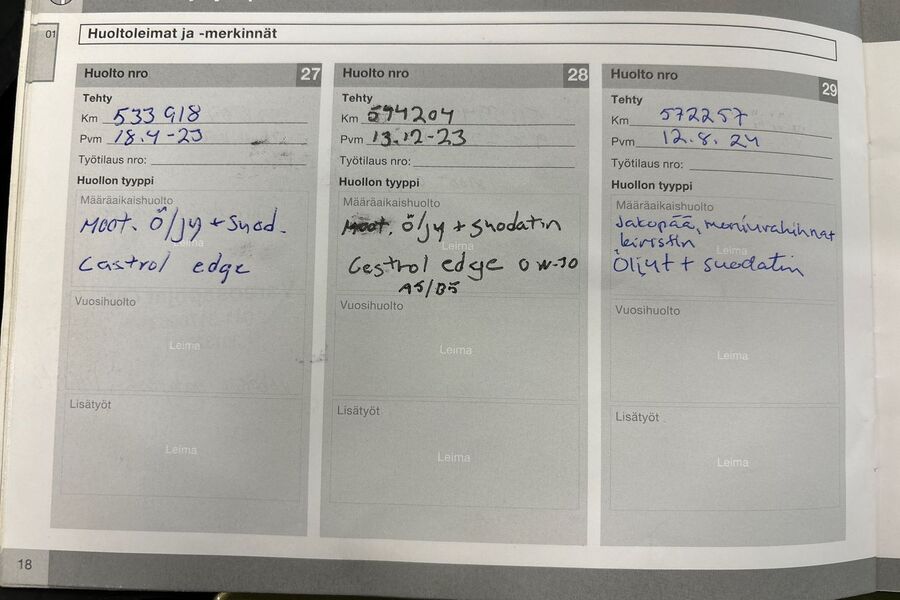 01
Huoltoleimat ja -merkinnät
Huolto nro 27
Tehty
Km 533 918
Pvm 18.4-23
Työtilaus nro:
Huollon tyyppi
Määräaikaishuolto
Moot. Öljy + Suod.
Leima
Castrol edge
Vuosihuolto
Leima
Lisätyöt
Leima
Huolto nro 28
Tehty
Km 544204
Pvm 13.12-23
Työtilaus nro:
Huollon tyyppi
Määräaikaishuolto
Moot. öljy + suodatin
Leima
Castrol edge 0W-30
A5/B5
Vuosihuolto
Leima
Lisätyöt
Leima
Huolto nro 29
Tehty
Km 572257
Pvm 12.8.24
Työtilaus nro:
Huollon tyyppi
Määräaikaishuolto
Jakopää, moniurahihnat
Leima
kiristin
Öljyt + suodatin
Vuosihuolto
Leima
Lisätyöt
Leima
18